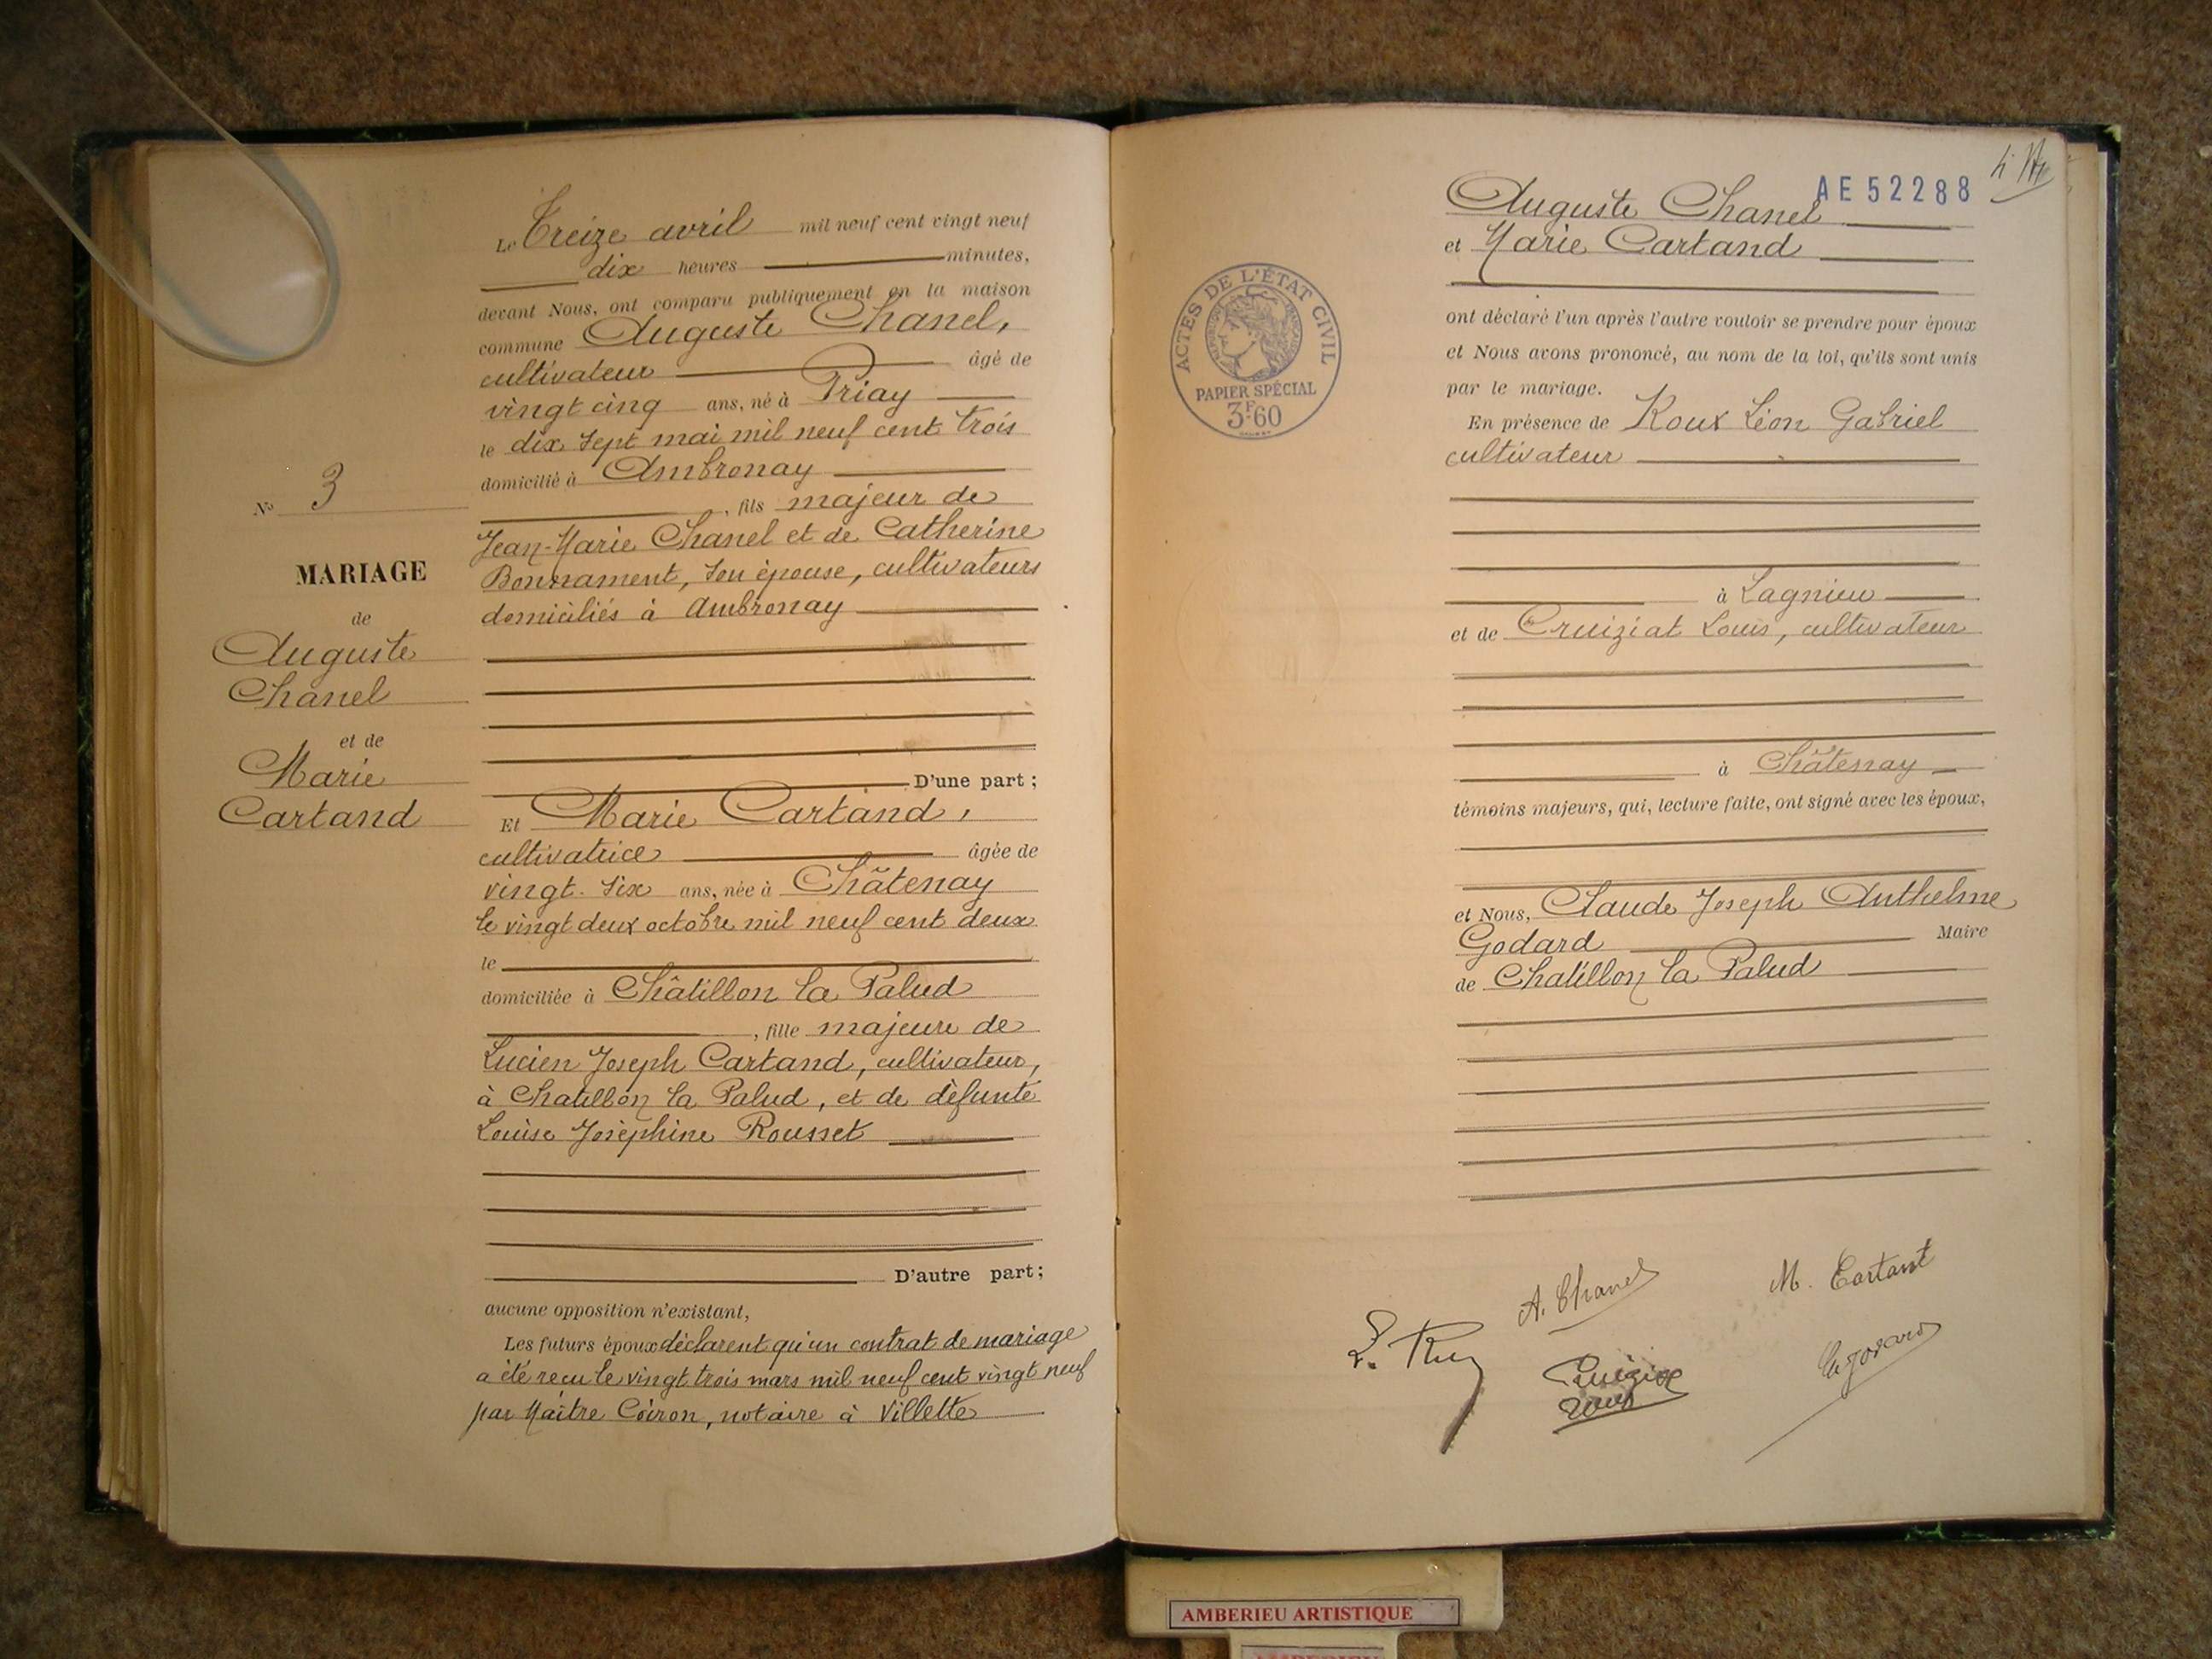 Le Treize avril mil neuf cent vingt neuf
dix heures minutes,
devant Nous, ont comparu publiquement en la maison
commune Auguste Chanel,
cultivateur âgé de
vingt cinq ans, né à Priay
le dix sept mai mil neuf cent trois
domicilié à Ambronay
, fils majeur de
Jean-Marie Chanel et de Catherine
Bonnament, son épouse, cultivateurs
domiciliés à Ambronay
D'une part ;
Et Marie Cartand,
cultivatrice âgée de
vingt-six ans, née à Châtenay
le vingt deux octobre mil neuf cent deux
le
domiciliée à Châtillon la Palud
, fille majeure de
Lucien Joseph Cartand, cultivateur,
à Chatillon la Palud, et de défunte
Louise Joséphine Rousset
D'autre part ;
aucune opposition n'existant,
Les futurs époux déclarent qu'un contrat de mariage
a été reçu le vingt trois mars mil neuf cent vingt neuf
par Maître Coiron, notaire à Villette
No 3
MARIAGE
de
Auguste
Chanel
et de
Marie
Cartand
AE 52288
Auguste Chanel
et Marie Cartand
ont déclaré l'un après l'autre vouloir se prendre pour époux
et Nous avons prononcé, au nom de la loi, qu'ils sont unis
par le mariage.
En présence de Roux Léon Gabriel
cultivateur
à Lagnieu
et de Cruiziat Louis, cultivateur
à Châtenay
témoins majeurs, qui, lecture faite, ont signé avec les époux,
et Nous, Claude Joseph Anthelme
Godard Maire
de Chatillon la Palud
ACTES DE L'ÉTAT CIVIL
RÉPUBLIQUE FRANÇAISE
PAPIER SPÉCIAL
3F60
A. Chanel
M. Cartant
AMBERIEU ARTISTIQUE
AMBERIEU